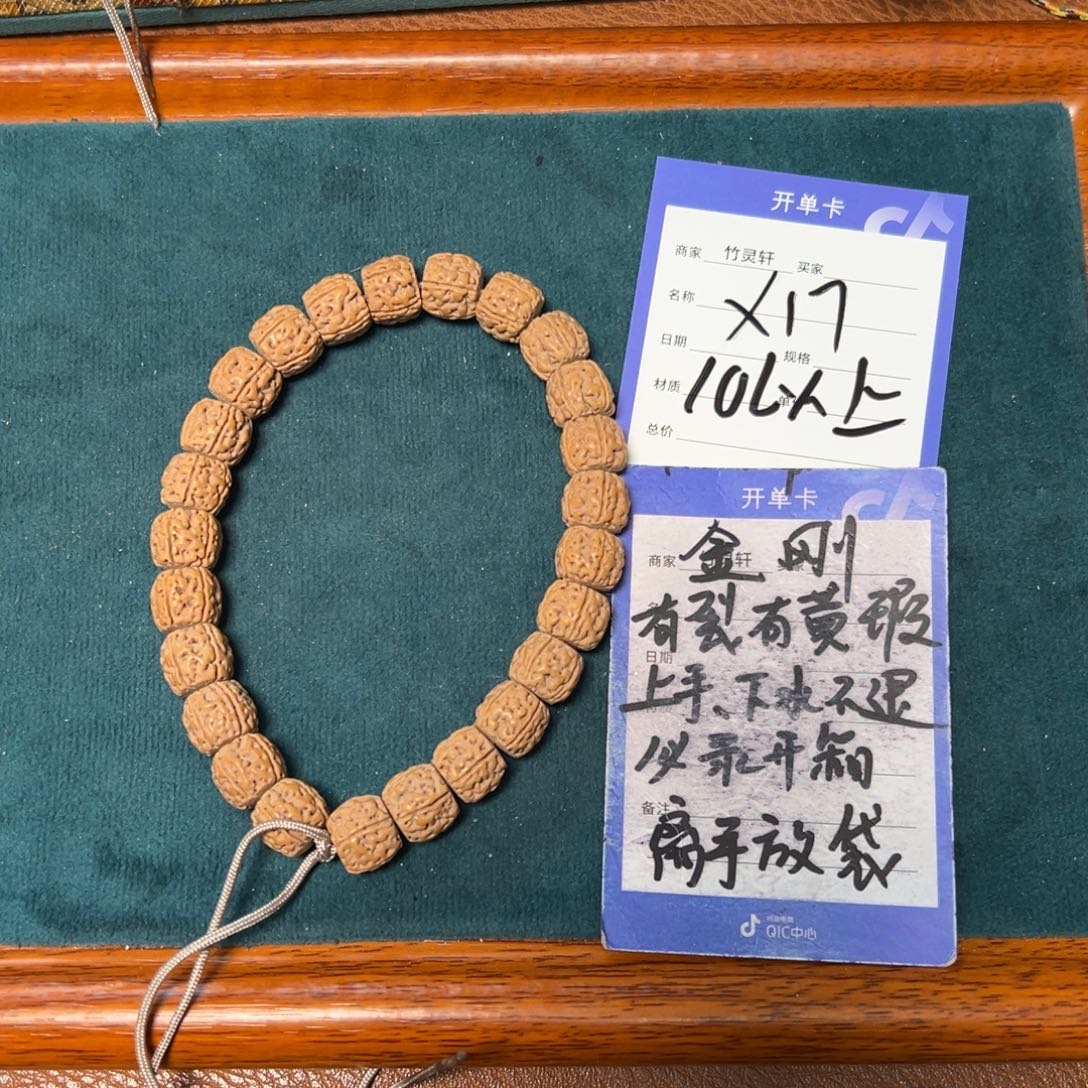 开单卡
商家 竹灵轩 买家
名称 X17
日期 规格
材质 10L以上
总价
开单卡
商家 轩
金刚
有裂有黄瑕
日期
上手、下水不退
必录开箱
备注
离手放袋
抖音电商
QIC中心